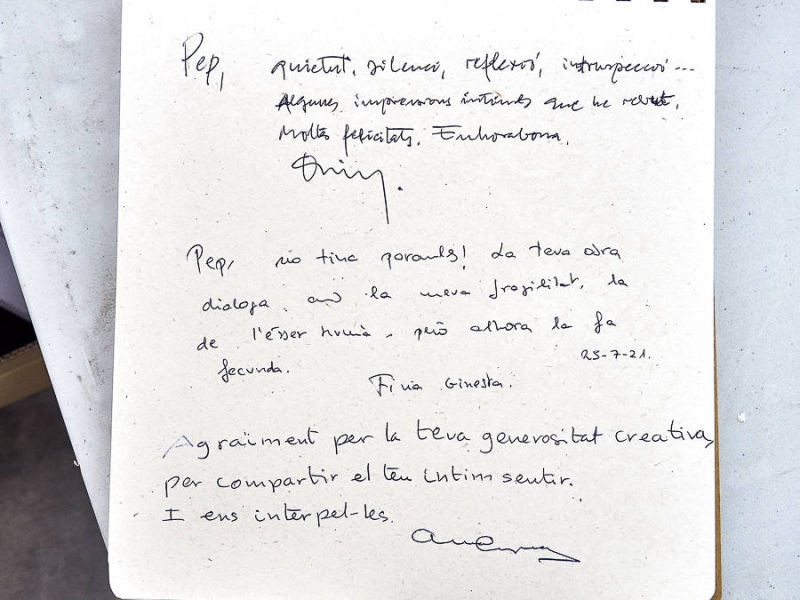 Pep, quietut, silenci, reflexió, introspecció...
Algunes impressions íntimes que he rebut.
Moltes felicitats. Enhorabona.
Pep, no tinc paraules! La teva obra
dialoga amb la meva fragilitat, la
de l'ésser humà, però alhora la fa
fecunda.
25-7-21.
Fina Ginesta.
Agraïment per la teva generositat creativa,
per compartir el teu íntim sentir.
I ens interpel·les.